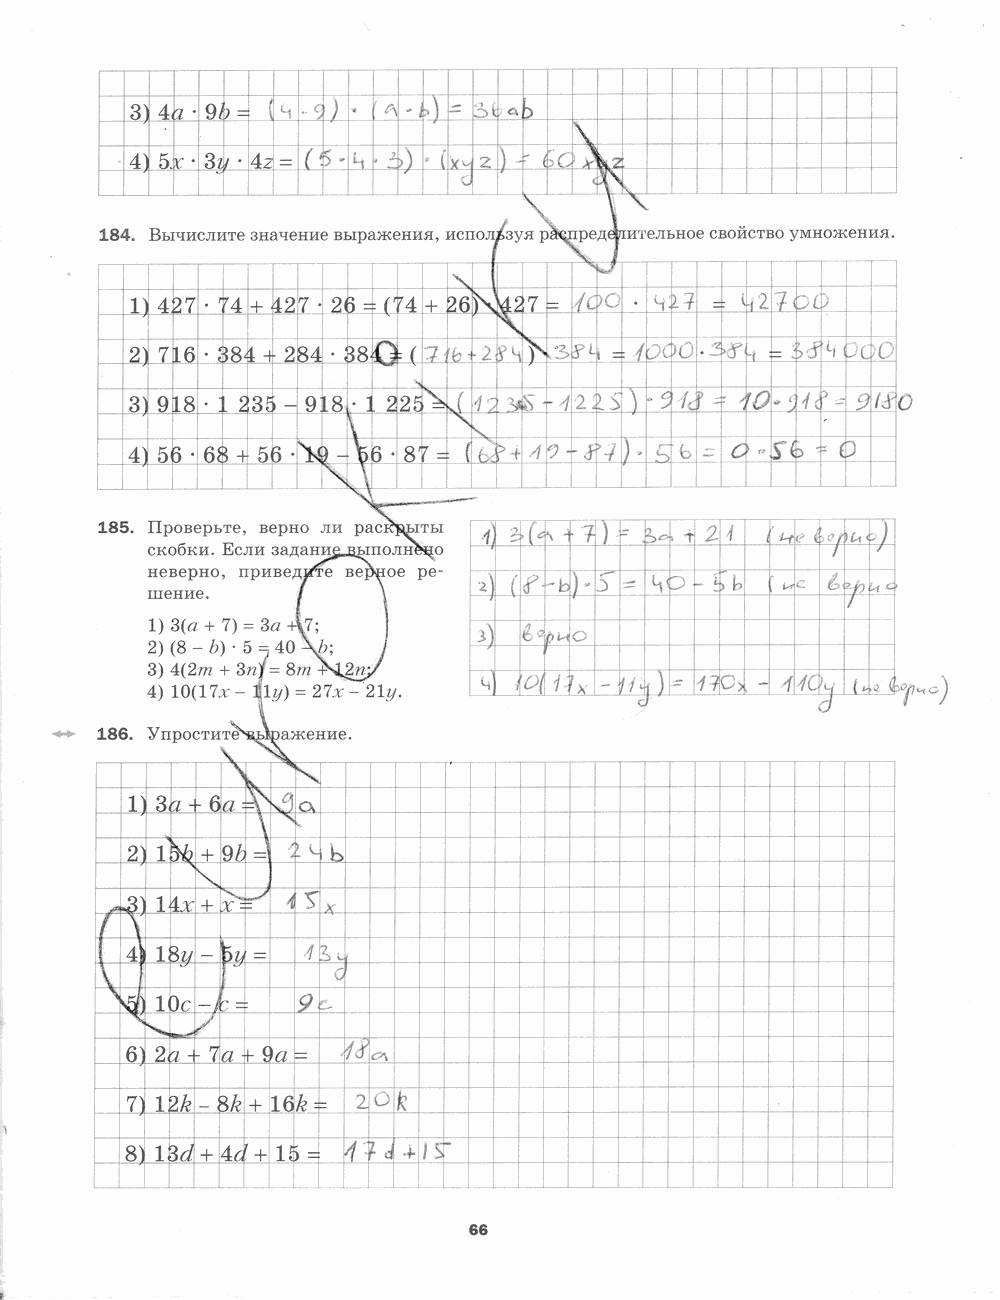 3) 4a · 9b = (4 · 9) · (a · b) = 36ab
4) 5x · 3y · 4z = (5 · 4 · 3) · (xyz) = 60xyz
184. Вычислите значение выражения, используя распределительное свойство умножения.
1) 427 · 74 + 427 · 26 = (74 + 26) · 427 = 100 · 427 = 42700
2) 716 · 384 + 284 · 384 = (716+284) · 384 = 1000 · 384 = 384000
3) 918 · 1 235 – 918 · 1 225 = (1235 – 1225) · 918 = 10 · 918 = 9180
4) 56 · 68 + 56 · 19 – 56 · 87 = (68+19–87) · 56 = 0 · 56 = 0
185. Проверьте, верно ли раскрыты
скобки. Если задание выполнено
неверно, приведите верное ре-
шение.
1) 3(a + 7) = 3a + 7;
2) (8 – b) · 5 = 40 – b;
3) 4(2m + 3n) = 8m + 12n;
4) 10(17x – 11y) = 27x – 21y.
1) 3(a + 7) = 3a + 21 (не верно)
2) (8–b) · 5 = 40 – 5b (не верно
3) верно
4) 10(17x – 11y) = 170x – 110y (не верно)
186. Упростите выражение.
1) 3a + 6a = 9a
2) 15b + 9b = 24b
3) 14x + x = 15x
4) 18y – 5y = 13y
5) 10c – c = 9c
6) 2a + 7a + 9a = 18a
7) 12k – 8k + 16k = 20k
8) 13d + 4d + 15 = 17d+15
66